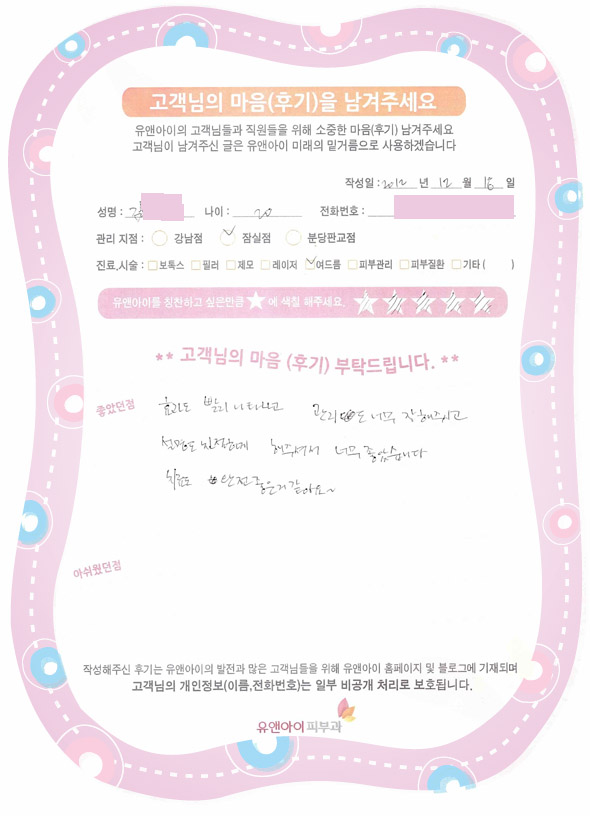 고객님의 마음(후기)을 남겨주세요
유앤아이의 고객님들과 직원들을 위해 소중한 마음(후기) 남겨주세요
고객님이 남겨주신 글은 유앤아이 미래의 밑거름으로 사용하겠습니다
작성일 : 2012 년 12 월 18 일
성명 : 나이 : 20 전화번호 :
관리 지점 : 강남점 잠실점 분당판교점
진료,시술 : 보톡스 필러 제모 레이저 여드름 피부관리 피부질환 기타 ( )
유앤아이를 칭찬하고 싶은만큼 ★에 색칠 해주세요.
** 고객님의 마음 (후기) 부탁드립니다. **
좋았던점
효과도 빨리 나타나고 관리도 너무 잘해주시고
설명도 친절하게 해주셔서 너무 좋았습니다
치료도 완전 좋은거 같아요~
아쉬웠던점
작성해주신 후기는 유앤아이의 발전과 많은 고객님들을 위해 유앤아이 홈페이지 및 블로그에 기재되며
고객님의 개인정보(이름,전화번호)는 일부 비공개 처리로 보호됩니다.
유앤아이피부과